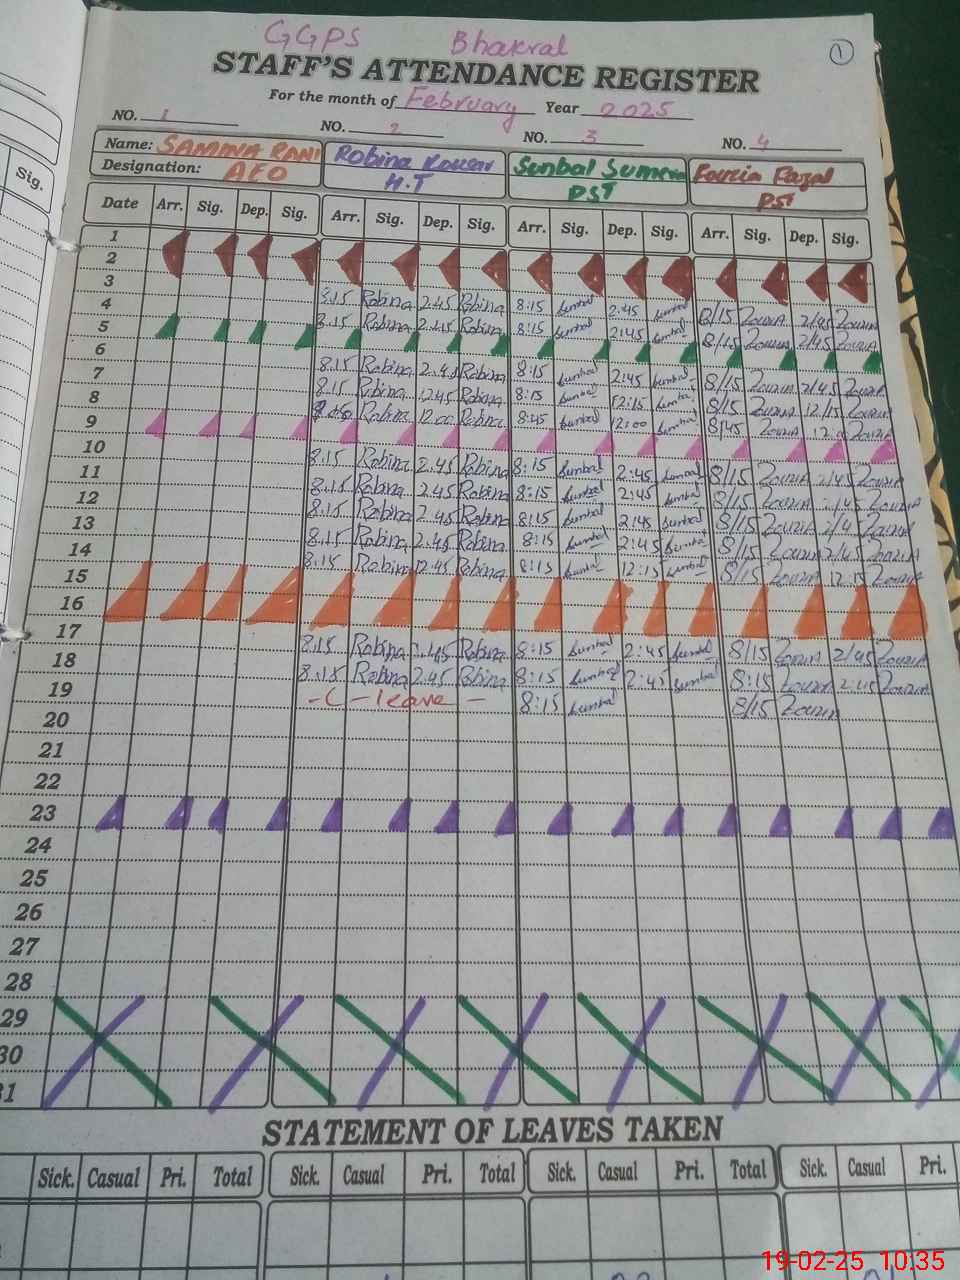 GGPS Bhakral
1
STAFF'S ATTENDANCE REGISTER
For the month of February Year 2025
NO. 1 NO. 2 NO. 3 NO. 4
Name: SAMINA RANI Robina Kousar Sunbal Sumera Fouzia Fazal
Designation: AEO H.T PST PST
Sig.
Date Arr. Sig. Dep. Sig. Arr. Sig. Dep. Sig. Arr. Sig. Dep. Sig. Arr. Sig. Dep. Sig.
1
2
3 8.15 Robina 2.45 Robina 8:15 Sunbal 2:45 Sunbal 8/15 Zouzia 2/45 Zouzia
4 8.15 Robina 2.45 Robina 8:15 Sunbal 2:45 Sunbal 8/15 Zouzia 2/45 Zouzia
5
6 8.15 Robina 2.45 Robina 8:15 Sunbal 2:45 Sunbal 8/15 Zouzia 2/45 Zouzia
7 8.15 Robina 12.45 Robina 8:15 Sunbal 12:15 Sunbal 8/15 Zouzia 12/15 Zouzia
8 Robina 12.00 Robina 8:45 Sunbal 12:00 Sunbal 8/45 Zouzia Zouzia
9
10 8.15 Robina 2.45 Robina 8:15 Sunbal 2:45 Sunbal 8/15 Zouzia 2/45 Zouzia
11 8.15 Robina 2.45 Robina 8:15 Sunbal 2:45 Sunbal 8/15 Zouzia 2/45 Zouzia
12 8.15 Robina 2.45 Robina 8:15 Sunbal 2:45 Sunbal 8/15 Zouzia Zouzia
13 8.15 Robina 2.45 Robina 8:15 Sunbal 2:45 Sunbal 8/15 Zouzia 2/45 Zouzia
14 8.15 Robina 12.45 Robina 8:15 Sunbal 12:15 Sunbal 8/15 Zouzia 12:15 Zouzia
15
16
17 8.15 Robina 2.45 Robina 8:15 Sunbal 2:45 Sunbal 8/15 Zouzia 2/45 Zouzia
18 8.15 Robina 2.45 Robina 8:15 Sunbal 2:45 Sunbal 8:15 Zouzia 2:45 Zouzia
19 - C - leave - 8:15 Sunbal 8/15 Zouzia
20
21
22
23
24
25
26
27
28
29
30
31
STATEMENT OF LEAVES TAKEN
Sick. Casual Pri. Total Sick. Casual Pri. Total Sick. Casual Pri. Total Sick. Casual Pri.
19-02-25 10:35